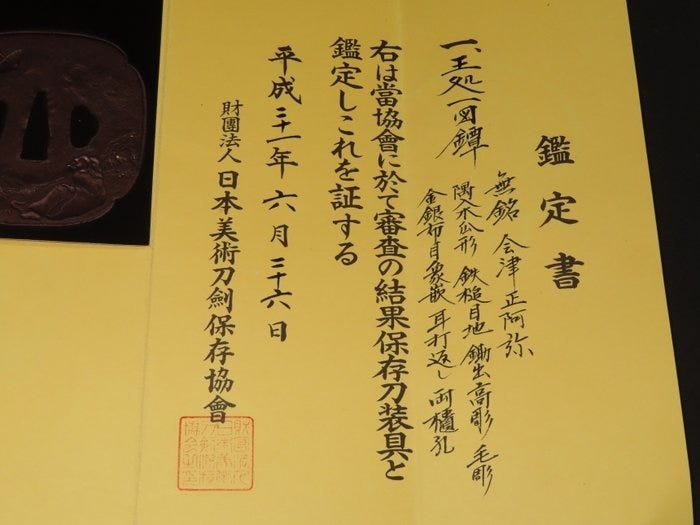 鑑定書
一、王処一図鐔
無銘 会津正阿弥
隅入木瓜形 鉄槌目地 鋤出高彫 毛彫
金銀布目象嵌 耳打返し 両櫃孔
右は當協會に於て審査の結果保存刀装具と
鑑定しこれを証する
平成二十一年 六月 二十六日
財團法人 日本美術刀劍保存協會